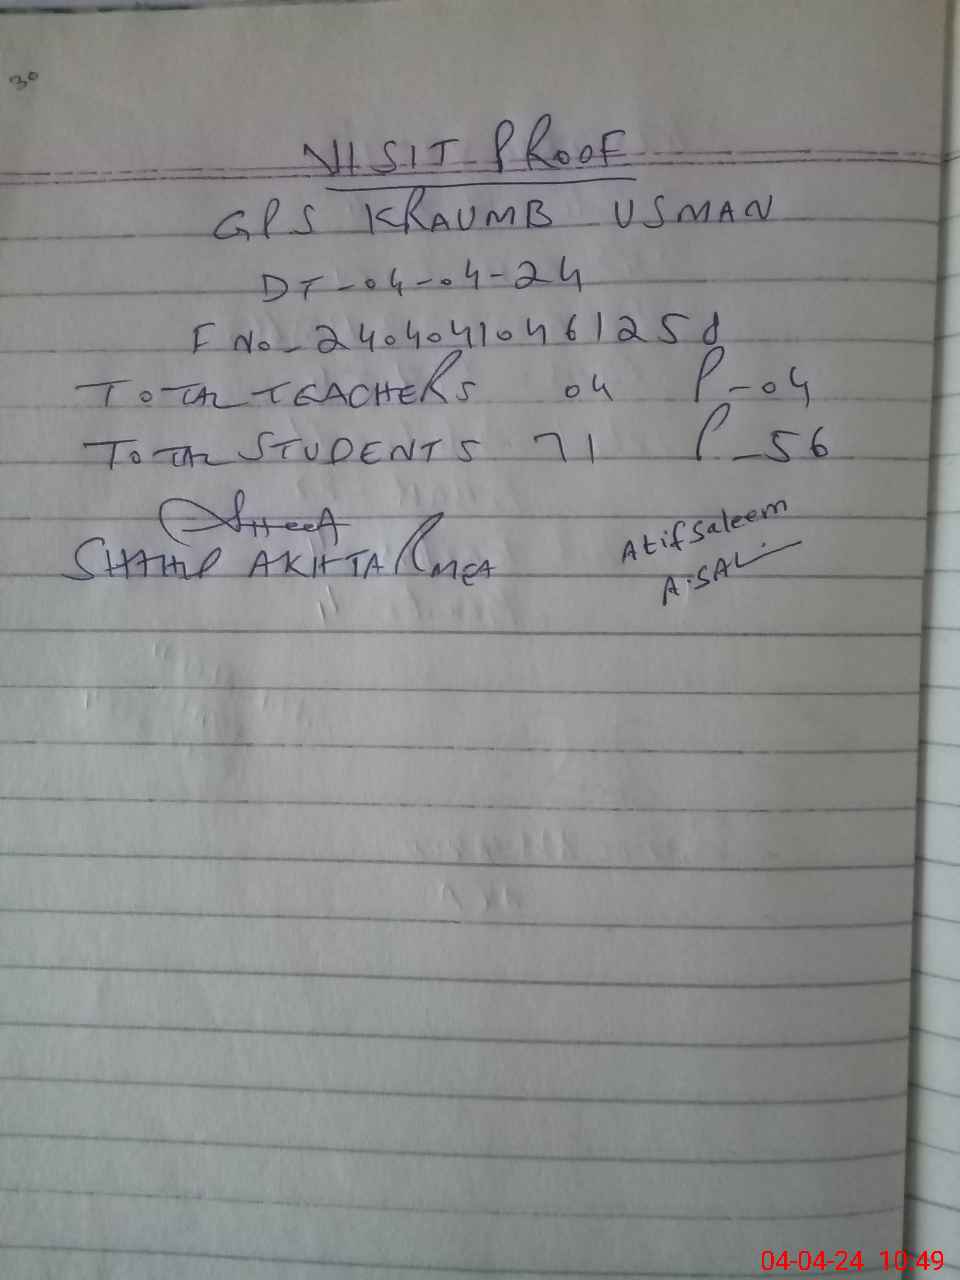 30
VISIT PROOF
GPS KRAUMB USMAN
DT-04-04-24
F No- 24040410461258
TOTAL TEACHERS 04 P-04
TOTAL STUDENTS 71 P-56
Atif Saleem
SHAHID AKHTAR MEA
A.SAL
04-04-24 10:49